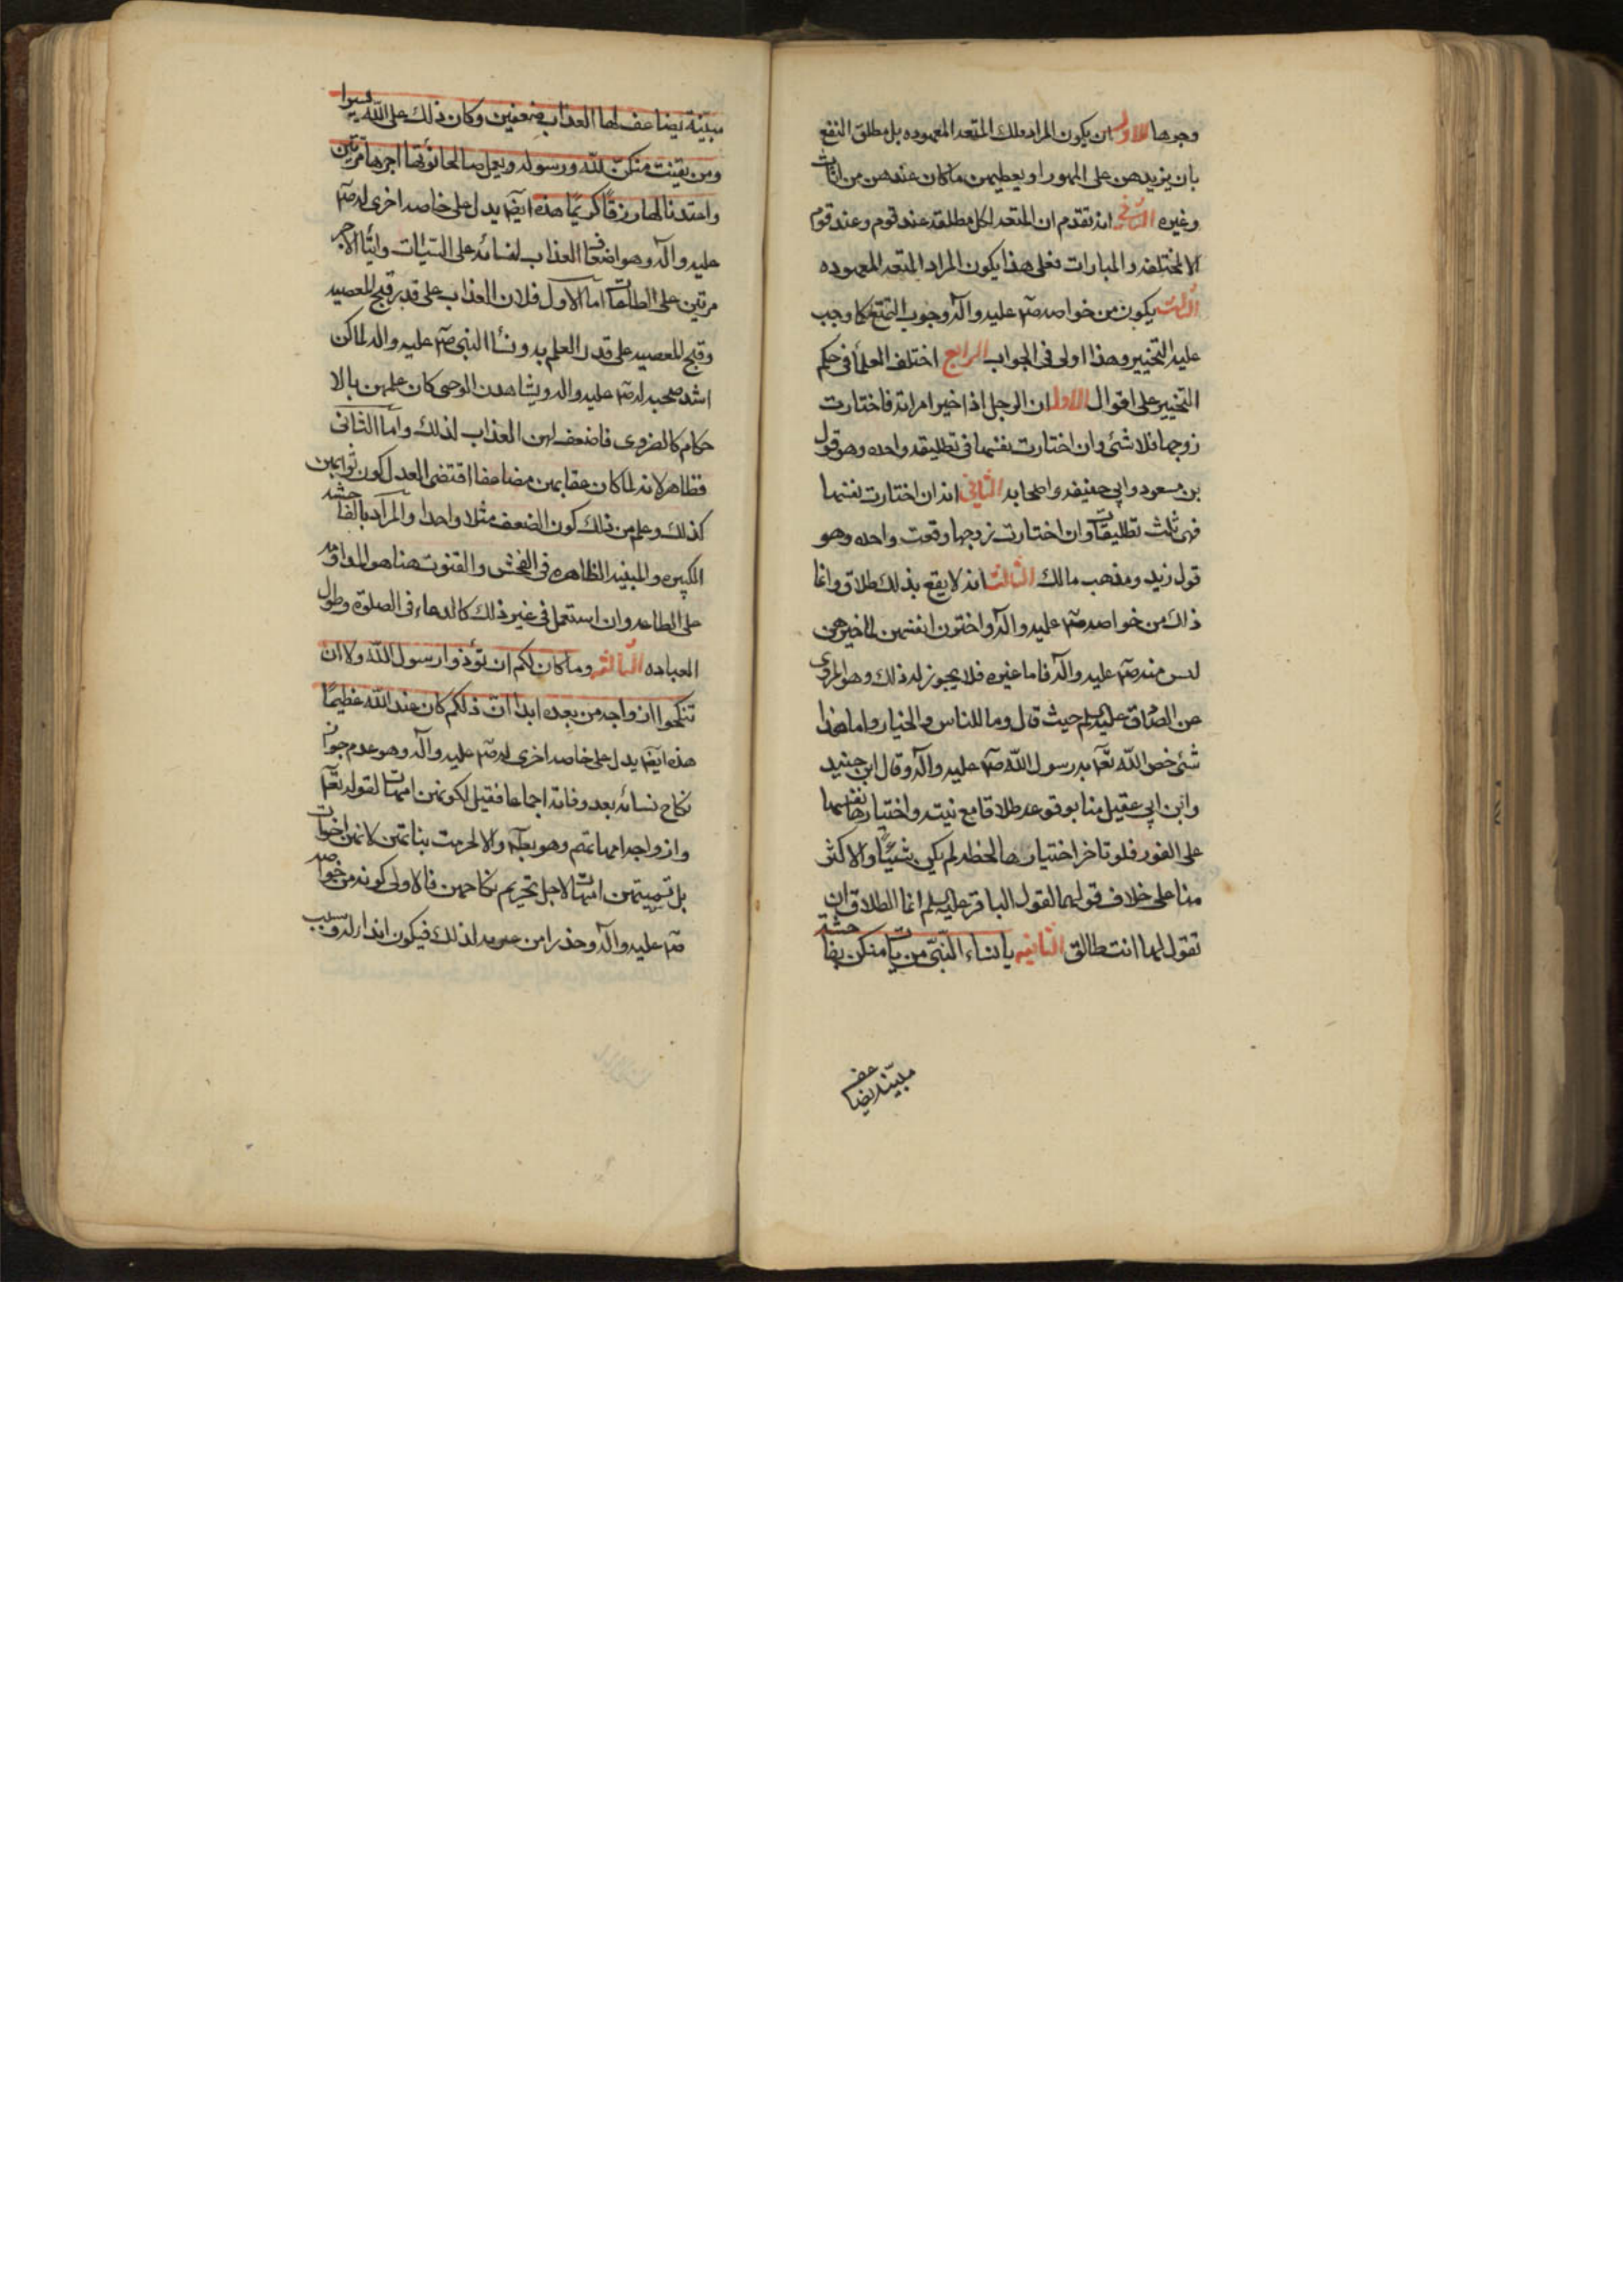 وجوها الاول ان يكون المراد بتلك المتعه المعهوده بل مطلق النفع
بان يزيدهن على المهور او يعطيهن ما كان عندهن من اثاث
وغيره الثاني انه تقدم ان المتعه لكل مطلقة عند قوم وعند قوم
الا المختلعه والمبارات فعلى هذا يكون المراد المتعه المعهوده
الثالث يكون من خواصه صم عليه وآله وجوب التمتع كما وجب
عليه التخيير وهذا اولى فى الجواب الرابع اختلف العلمآ فى حكم
التخيير على اقوال الاول ان الرجل اذا خير امراته فاختارت
زوجها فلا شئ وان اختارت نفسها فى تطليقه واحده وهو قول
بن مسعود وابي حنيفه واصحابه الثاني انه ان اختارت نفسها
فهى ثلث تطليقات وان اختارت زوجها وقعت واحده وهو
قول زيد ومذهب مالك الثالث انه لا يقع بذلك طلاق وانما
ذاك من خواصه صم عليه وآله واختون انفسهن لما خيرهن
لبس منه صم عليه وآله فاما غيره فلا يجوز له ذلك وهو المروى
عن الصادق عليه السلم حيث قال وما للناس والخيار واما هذا
شئ خص الله تعم به رسول الله صم عليه وآله وقال ابن جنيد
وابن ابي عقيل منا بوقوعه طلاقا مع نيته واختيارها نفسها
على الفور فلو تاخر اختيارها لحظه لم يكن شيئًا والاكثر
منا على خلاف قولهما لقول الباقر عليه السلم انما الطلاق ان
تقول لها انت طالق الثانيه يا نساء النبيّ من يات منكن بفاحشة
مبيّنه يضاعف
مبيّنة يضاعف لها العذاب ضعفين وكان ذلك على الله يسيرا
ومن يقنت منكنّ لله ورسوله ويعمل صالحا نؤتها اجرها مرتين
واعتدنا لها رزقًا كريمًا هذه ايضم يدل على خاصه اخرى له صم
عليه وآله وهو اضعاف العذاب لنسائه على السيئات وايتآ الاجر
مرتين على الطاعات امّا الاول فلان العذاب على قدر قبح المعصيه
وقبح المعصيه على قدر العلم به ونسآ النبى صم عليه واله لما كن
اشد صحبه له صم عليه واله ويشاهدن الوحى كان علمهن بالا
حكام كالضرورى فاضعف لهن العذاب لذلك وامّا الثانى
فظاهر لانه لما كان عقابهن مضاعفا اقتضى العدل كون ثوابهن
كذلك وعلم من ذلك كون الضعف مثلا واحدا والمراد بالفاحشه
الكبيره والمبينه الظاهره فى الفحش والقنوت هنا هو المداومه
على الطاعه وان استعمل فى غير ذلك كالدعاء فى الصلوة وطول
العباده الثالثه وما كان لكم ان تؤذوا رسول الله ولا ان
تنكحوا ازواجه من بعده ابدا ان ذلكم كان عند الله عظيمًا
هذه ايضم يدل على خاصه اخرى له صم عليه وآله وهو عدم جواز
نكاح نسائه بعد وفاته اجماعا فقيل لكونهن امهات لقوله تعم
وازواجه امهاتهم وهو بعيد والا لحرمت بناتهن كانهن اخوات
بل تسميتهن امهات لاجل تحريم نكاحهن فالاولى كونه من خواصه
صم عليه وآله وحذرا من لذلك فيكون ايذاء له وسبب